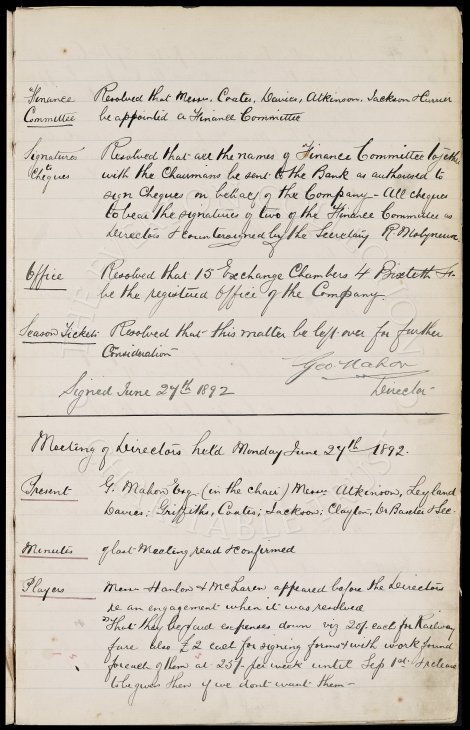 Finance Resolved that Messrs. Coates, Davies, Atkinson, Jackson & Currier
Committee be appointed a Finance Committee
Signatures Resolved that all the names of Finance Committee together
to Cheques with the Chairmans be sent to the Bank as authorised to
sign Cheques on behalf of the Company - All cheques
to bear the signatures of two of the Finance Committee as
Directors & countersigned by the Secretary R. Molyneux
Office Resolved that 15 Exchange Chambers 4 Bixteth St.
be the registered Office of the Company.
Season Tickets Resolved that this matter be left over for further
Consideration
Geo Mahon
Signed June 27th 1892 Director
Meeting of Directors held Monday June 27th 1892.
Present G. Mahon Esq (in the chair) Messrs Atkinson, Leyland
Davies; Griffiths, Coates; Jackson; Clayton, Dr Baxter & Sec.
Minutes of last Meeting read & confirmed
Players Messrs Hanlon & McLaren appeared before the Directors
re an engagement when it was resolved
That they be paid expenses down viz 20/- each for Railway
fare also £2 each for signing forms & with work found
for each of them at 25/- per week until Sep 1st. & release
to be given them if we dont want them -